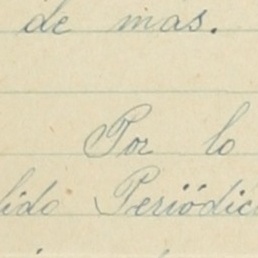 de mas.
Por lo
lido Periódic